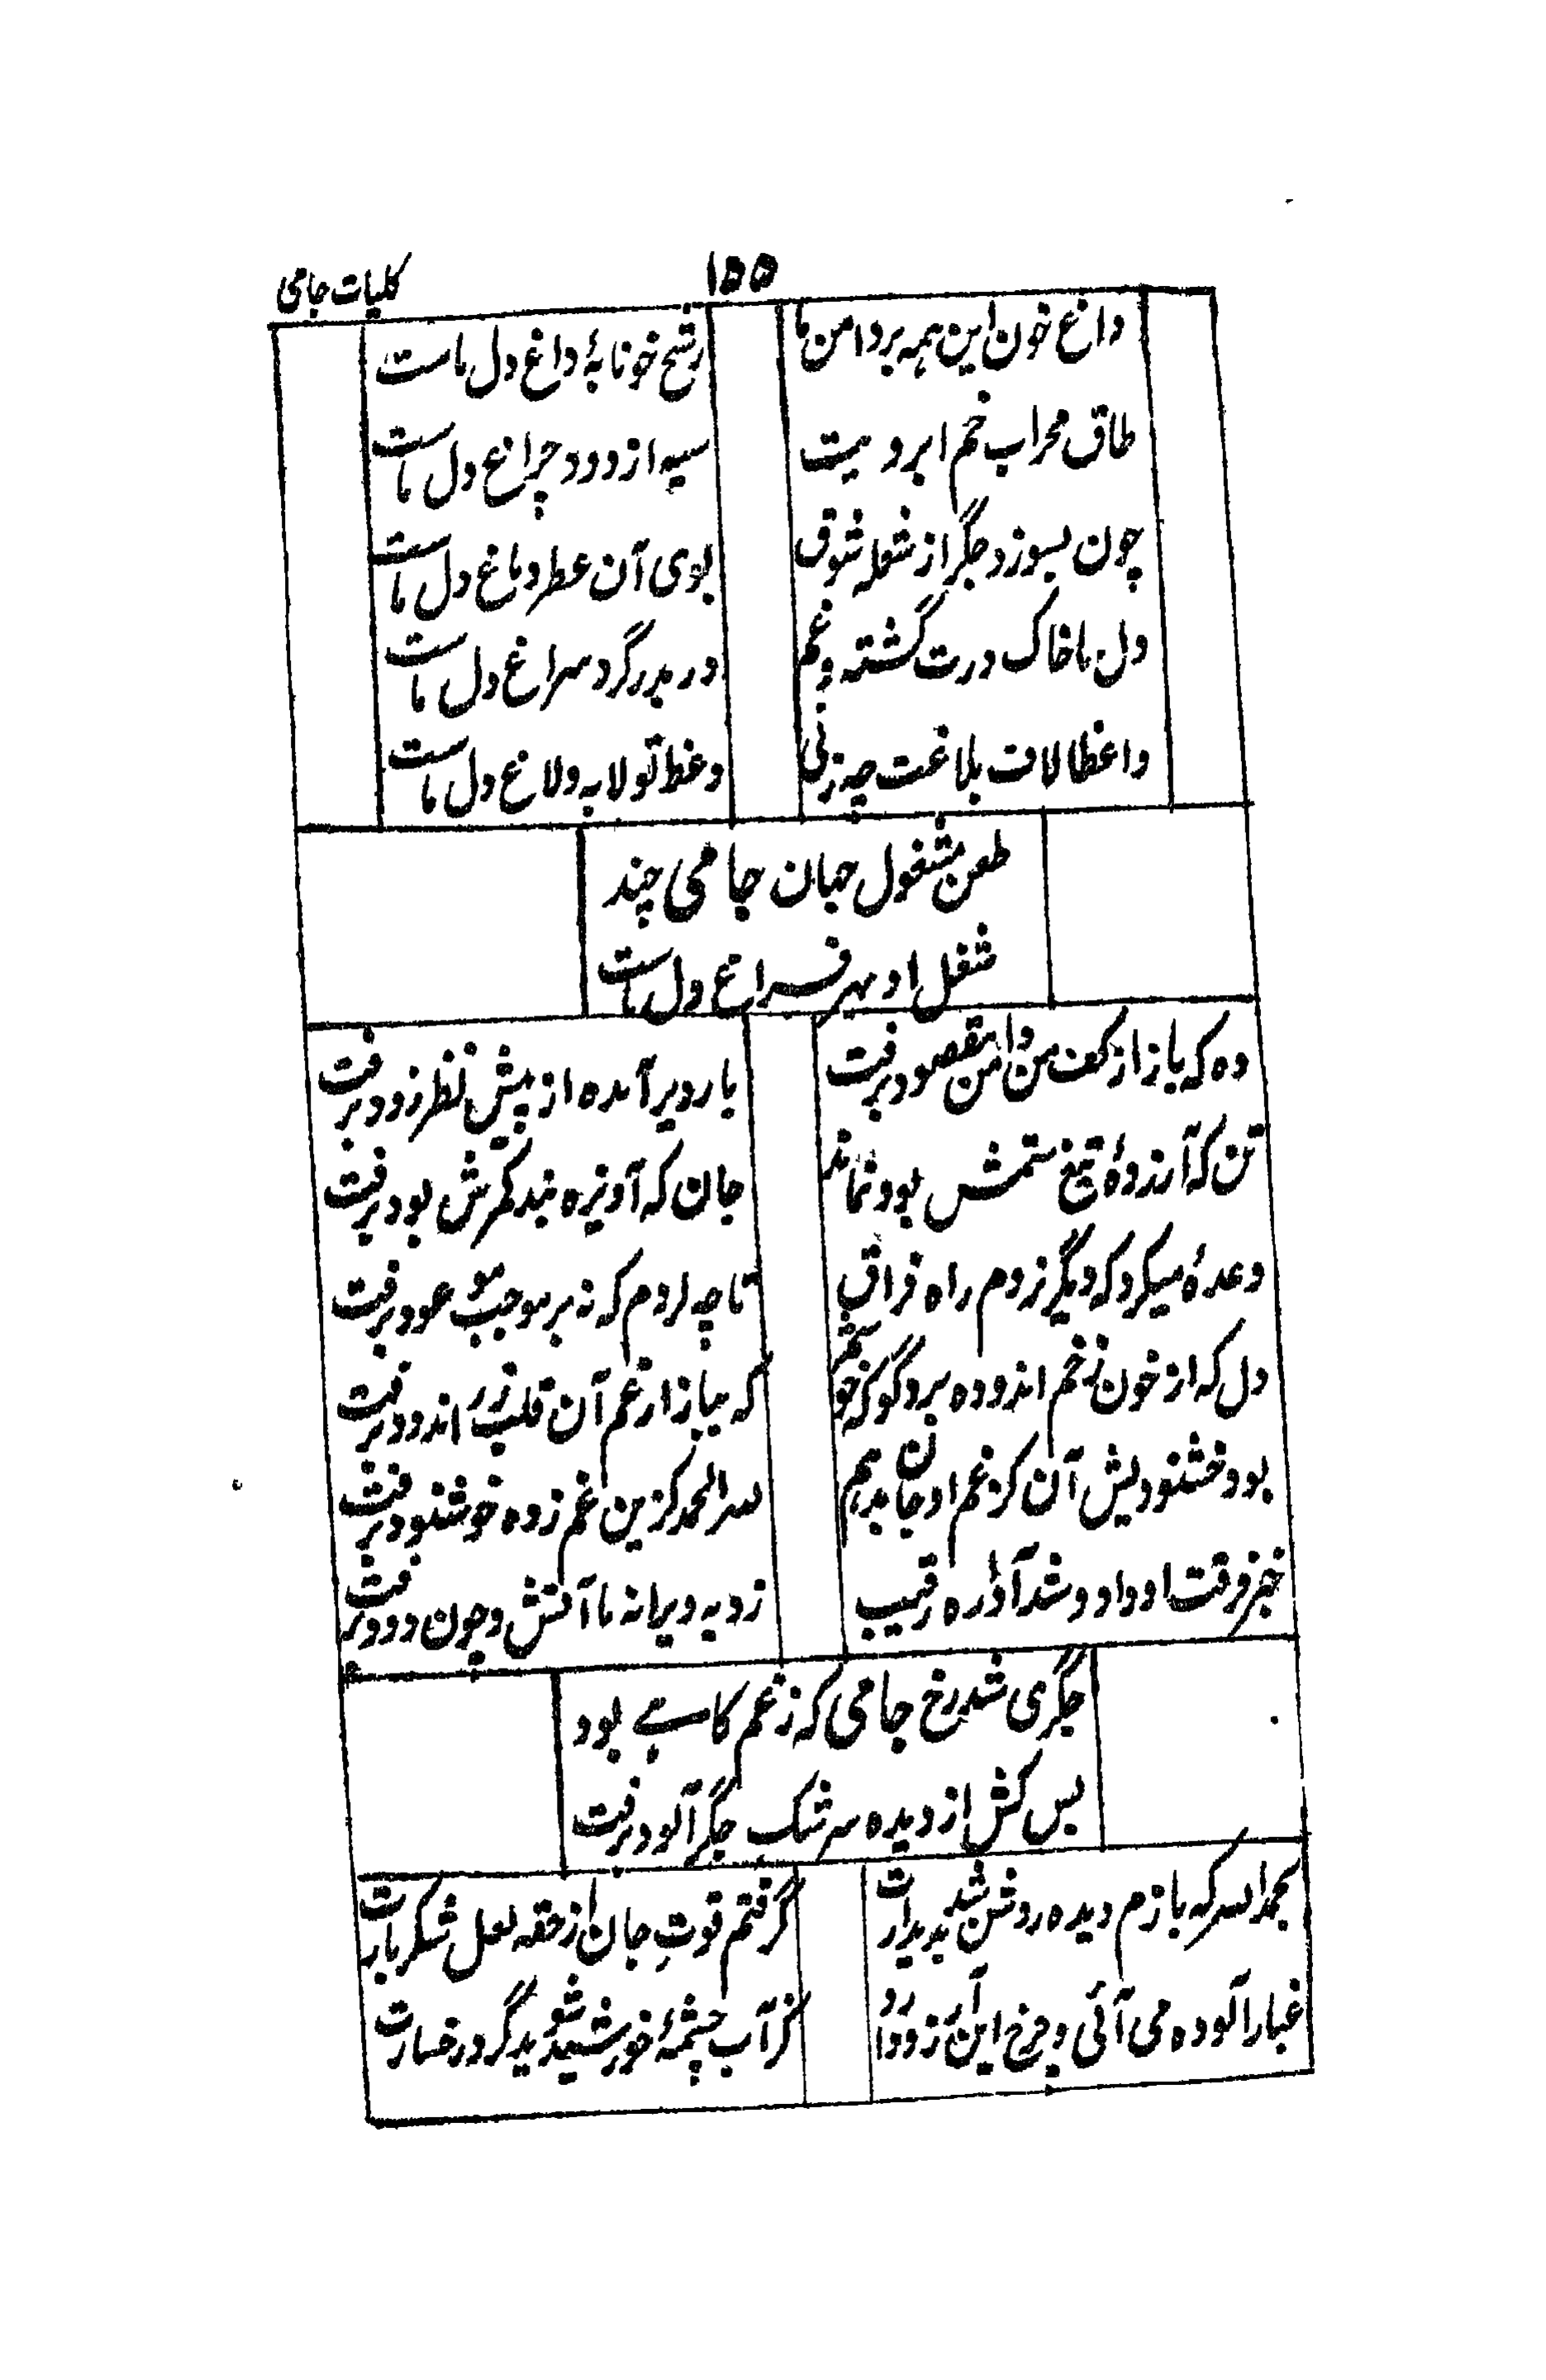 ۱۵۵
کلیات جامی
داغ خون این همه بر دامن ما
رشح خونابهٔ داغ دل ماست
طاق محراب خم ابرویت
سیه از دود چراغ دل ماست
چون بسوزد جگر از شعله شوق
بوی آن عطر دماغ دل ماست
دل ما خاک درت گشته و غم
در بدر گرد سراغ دل ماست
واعظا لاف بلاغت چه زنی
وعظ تو لابه و لاغ دل ماست
طعن مشغول جهان جامی چند
شغل او بهر فراغ دل ماست
وه که باز از کف من دامن مقصود برفت
یار دیر آمده از پیش نظر زود برفت
تن که آزردهٔ تیغ ستمش بود نماند
جان که آویزه بند کمرش بود برفت
وعدهٔ میکرد که دیگر نروم راه فراق
تا چه کردم که نه بر موجب موعود برفت
دل که از خون زخم اندوده برد گو که خوشم
که ببازار غم آن قلب زر اندود برفت
بود خشنودیش آن کز غم او جان بدهیم
لله الحمد کزین غم زده خوشنود برفت
خبر فرقت او داد و شد آواره رقیب
زد به ویرانه ما آتش و چون دود برفت
جگری شد رخ جامی که ز غم کاهے بود
بس کش از دیده سرشک جگر آلود برفت
بحمدالله که بازم دیده روشن شد بدیدارت
گرفتم قوت جان از حقه لعل شکربارت
غبار آلوده می آئی و چرخ این آرزو دارد
کز آب چشمهٔ خورشید شوید گرد رخسارت